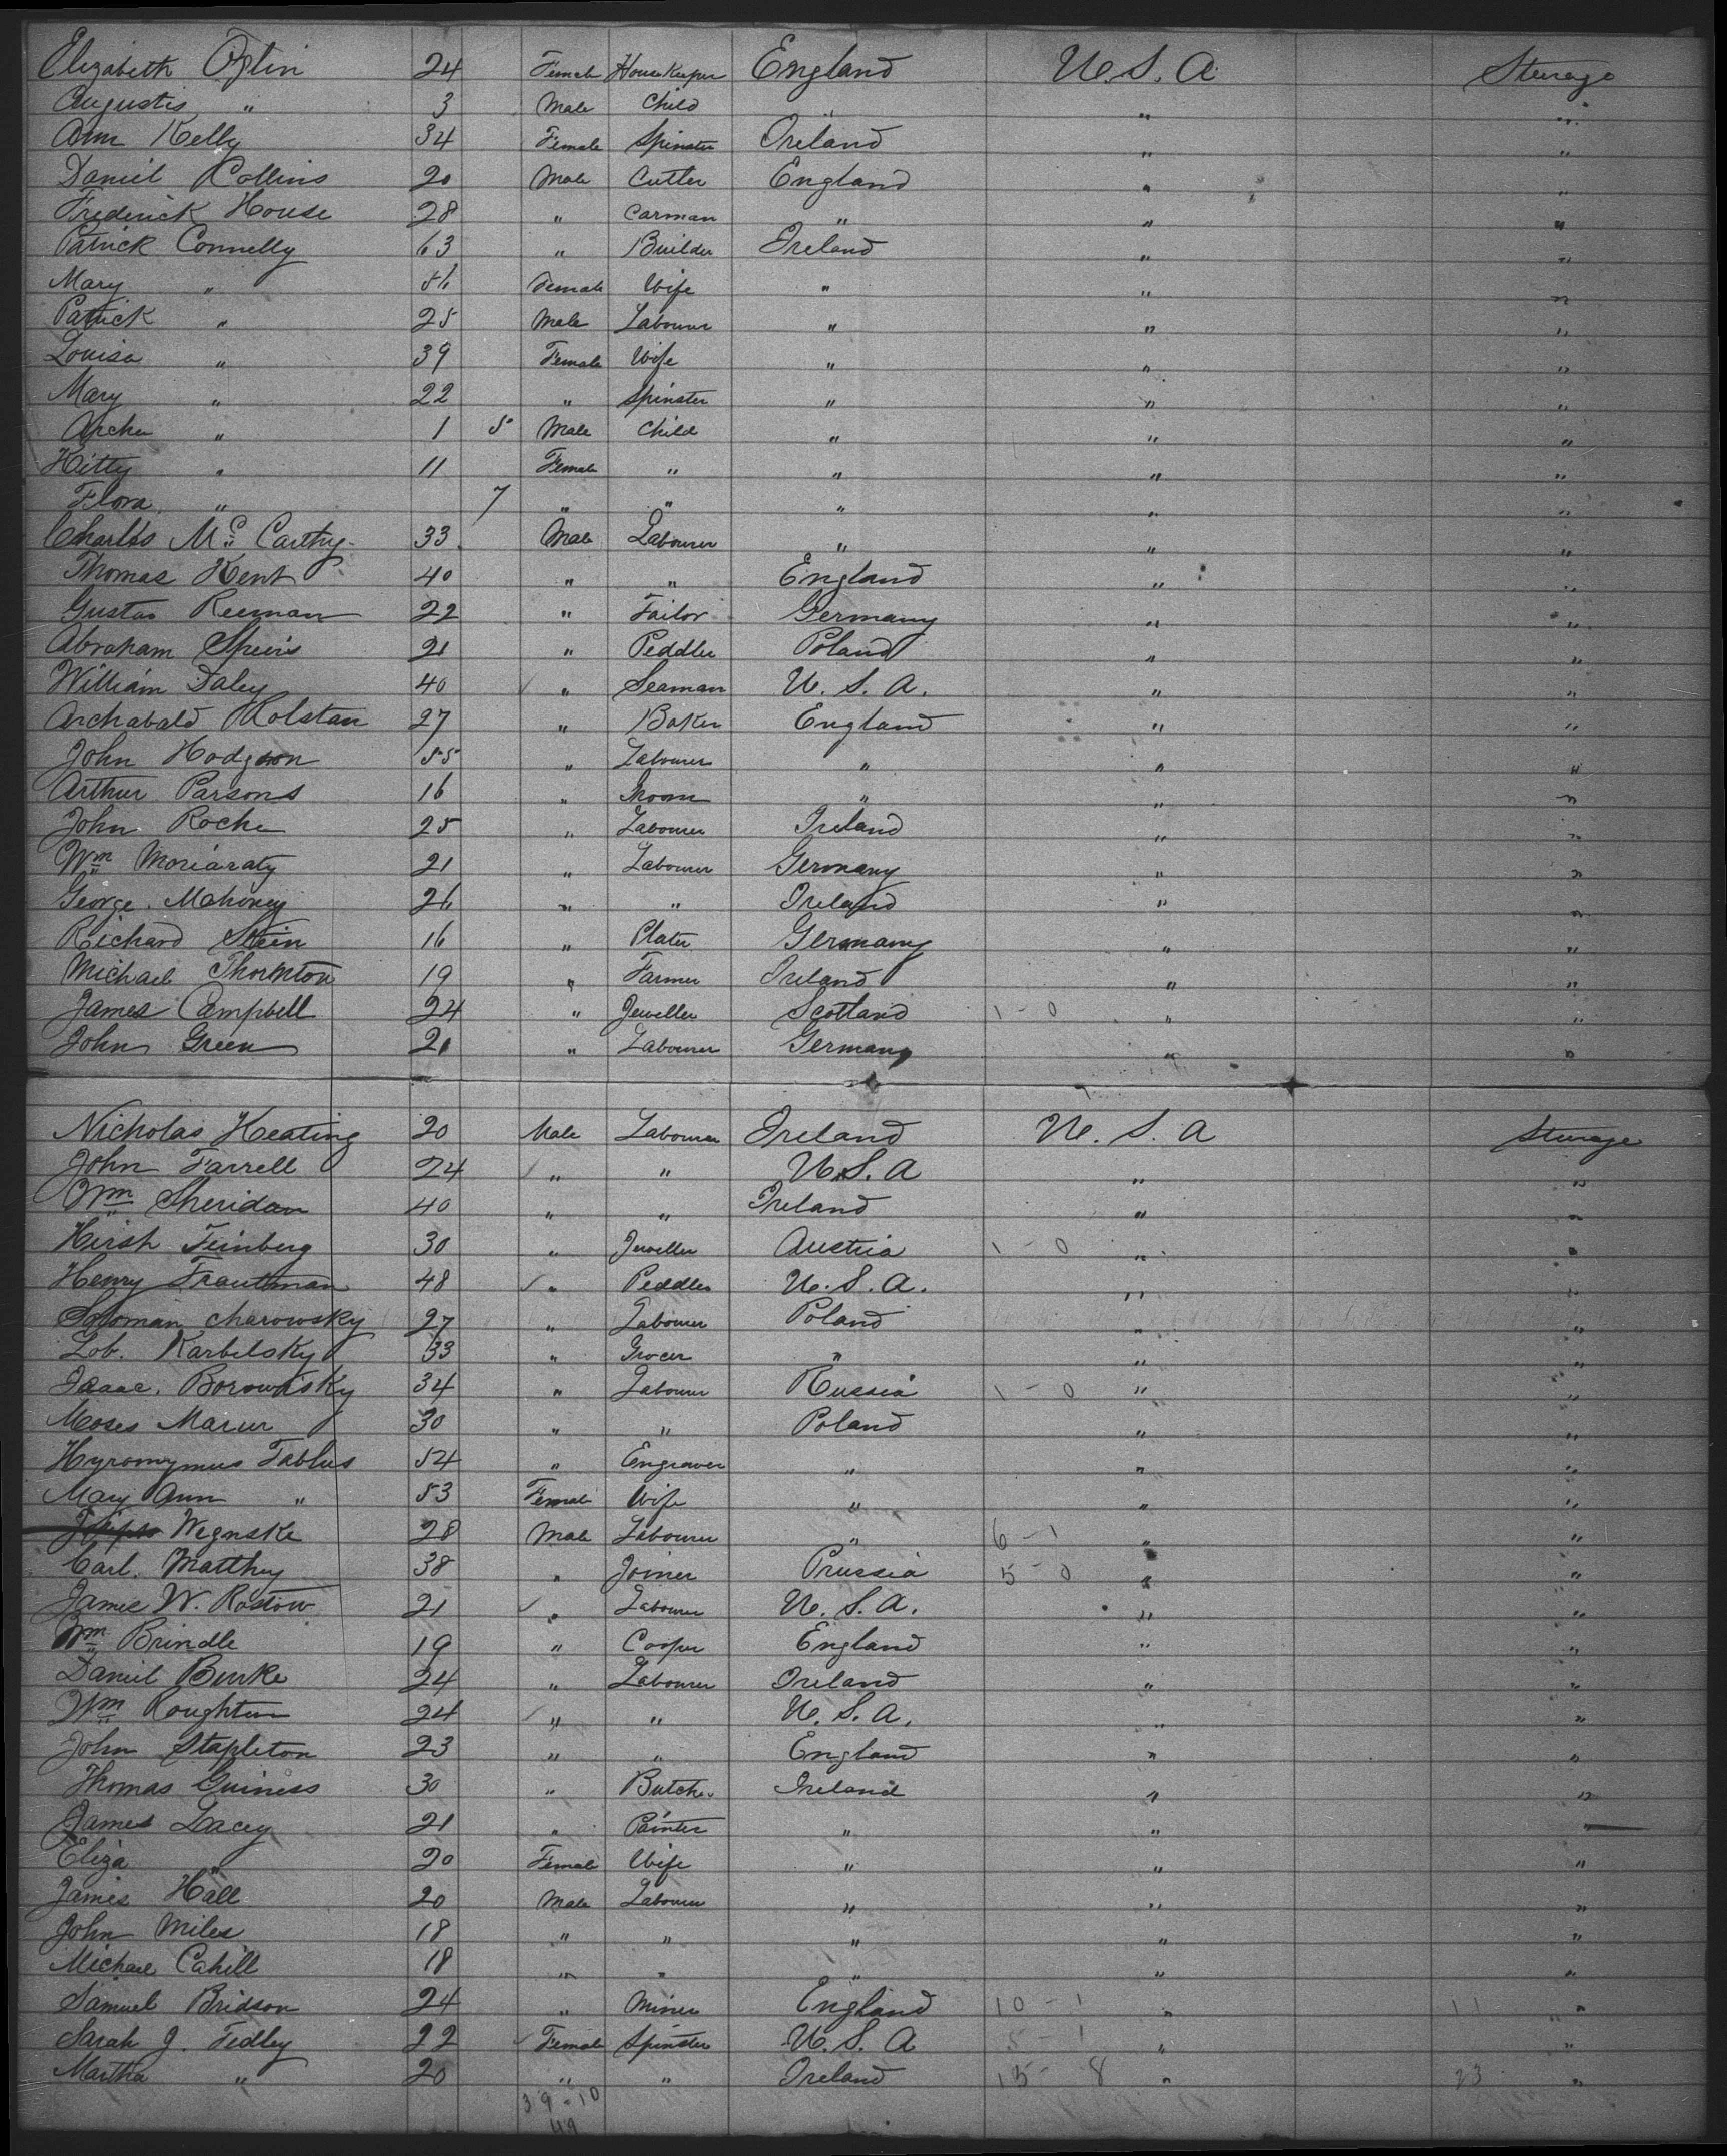 Elizabeth Oplin 24 Female Housekeeper England U.S.A. Sterage
Augustis " 3 Male Child " " "
Ann Kelly 34 Female Spinster Ireland " "
Daniel Collins 20 Male Cutler England " "
Frederick House 28 " Carman " " "
Patrick Connelly 63 " Builder Ireland " "
Mary " 56 Female Wife " " "
Patrick " 25 Male Labourer " " "
Louisa " 39 Female Wife " " "
Mary " 22 " Spinster " " "
Archer " 1 5 Male Child " " "
Kitty " 11 Female " " " "
Flora " 7 " " " " "
Charles Mc Carthy 33 Male Labourer " " "
Thomas Kent 40 " " England " "
Gustav Reeman 22 " Tailor Germany " "
Abraham Speiris 21 " Peddler Poland " "
William Daley 40 ✓ " Seaman U.S.A. " "
Archabald Rolstan 27 " Baker England " "
John Hodgson 55 " Labourer " " "
Arthur Parsons 16 " Groom " " "
John Roche 25 " Labourer Ireland " "
Wm Moriaraty 21 " Labourer Germany " "
George Mahoney 26 " " Ireland " "
Richard Stein 16 " Plater Germany " "
Michael Thornton 19 " Farmer Ireland " "
James Campbell 24 " Jeweller Scotland 1 - 0 " "
John Green 21 " Labourer Germany " "
Nicholas Keating 20 Male Labourer Ireland U.S.A Sterage
John Farrell 24 ✓ " " U.S.A " "
Wm Sheridan 40 " " Ireland " "
Hirsh Feinberg 30 " Jeweller Austria 1 - 0 " "
Henry Trautman 48 ✓ " Peddler U.S.A. " "
Soloman Charowsky 27 " Labourer Poland " "
Lob. Karbelsky 33 " Grocer " " "
Isaac. Borowisky 34 " Labourer Russia 1 - 0 " "
Moses Marur 30 " " Poland " "
Hyromymus Tablus 54 " Engraver " " "
Mary Ann " 53 Female Wife " " "
Wegnske 28 Male Labourer " 6 - 1 " "
Carl. Matthey 38 " Joiner Prussia 5 - 0 " "
Jamie W. Rostow 21 ✓ " Labourer U.S.A. " "
Wm Brindle 19 " Cooper England " "
Daniel Burke 24 " Labourer Ireland " "
Wm Roughton 24 ✓ " " U.S.A. " "
John Stapleton 23 " " England " "
Thomas Guiness 30 " Butcher Ireland " "
James Lacey 21 " Painter " " "
Eliza " 20 Female Wife " " "
James Hall 20 Male Labourer " " "
John Miles 18 " " " " "
Michael Cahill 18 " " " " "
Samuel Bridson 24 " Miner England 10 - 1 " 11 "
Sarah J. Tedley 22 ✓ Female Spinster U.S.A 5 - 1 " "
Martha " 20 " " Ireland 15 - 8 " 23 "
39 - 10
49